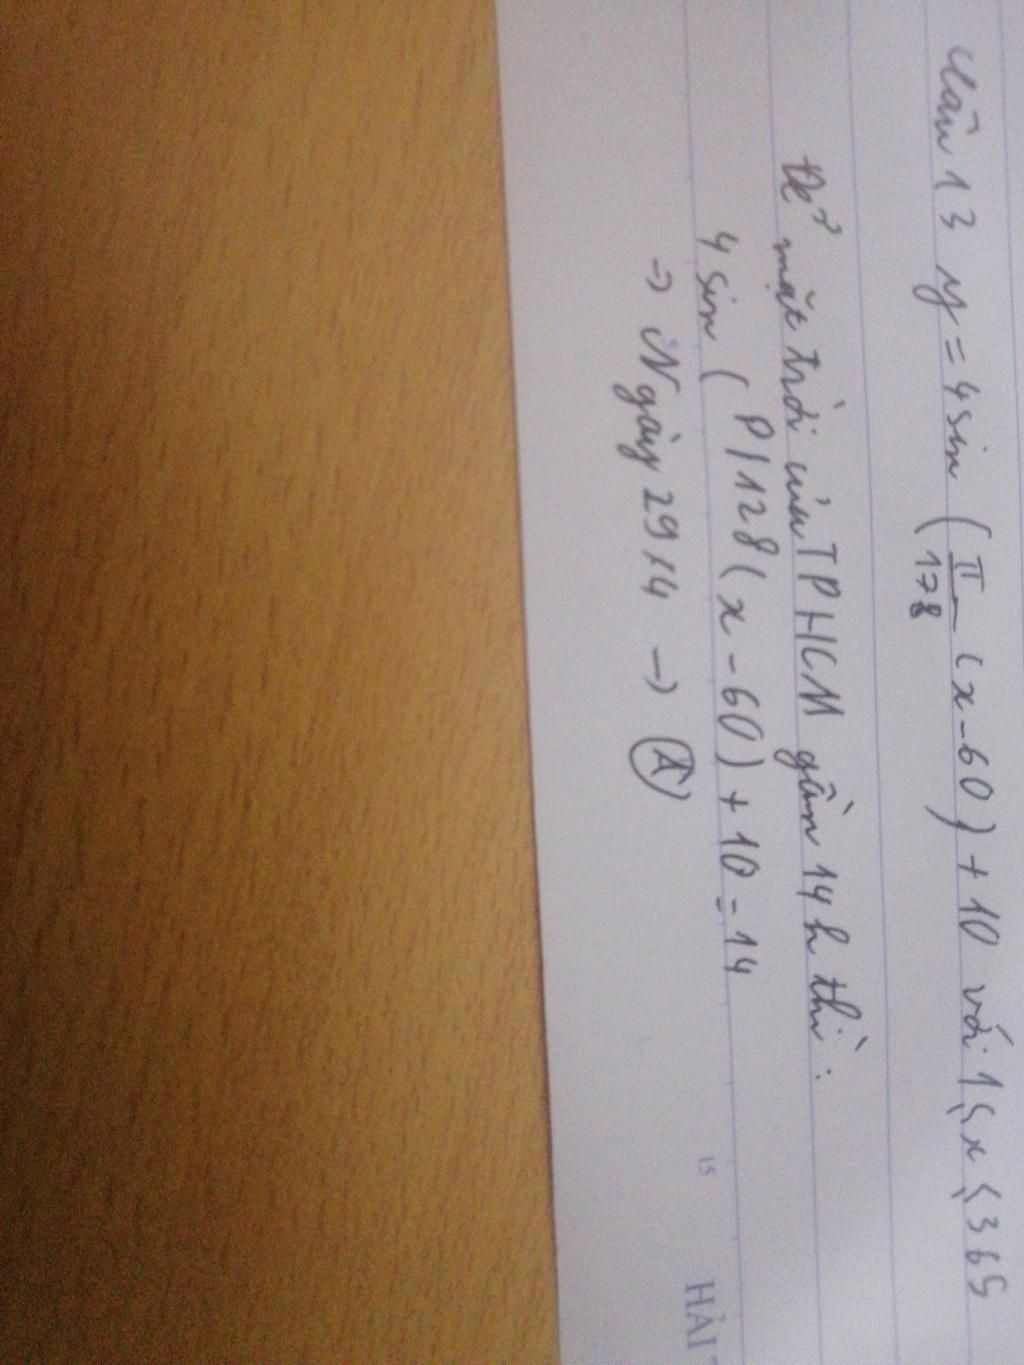 Câu 13 y = 4 sin ( π/178 (x - 60) + 10 với 1 ≤ x ≤ 365
Để mặt trời của TPHCM gần 14h thì :
4 sin ( P/128 ( x - 60 ) + 10 = 14
→ Ngày 29/4 → (A)
15
HẢI